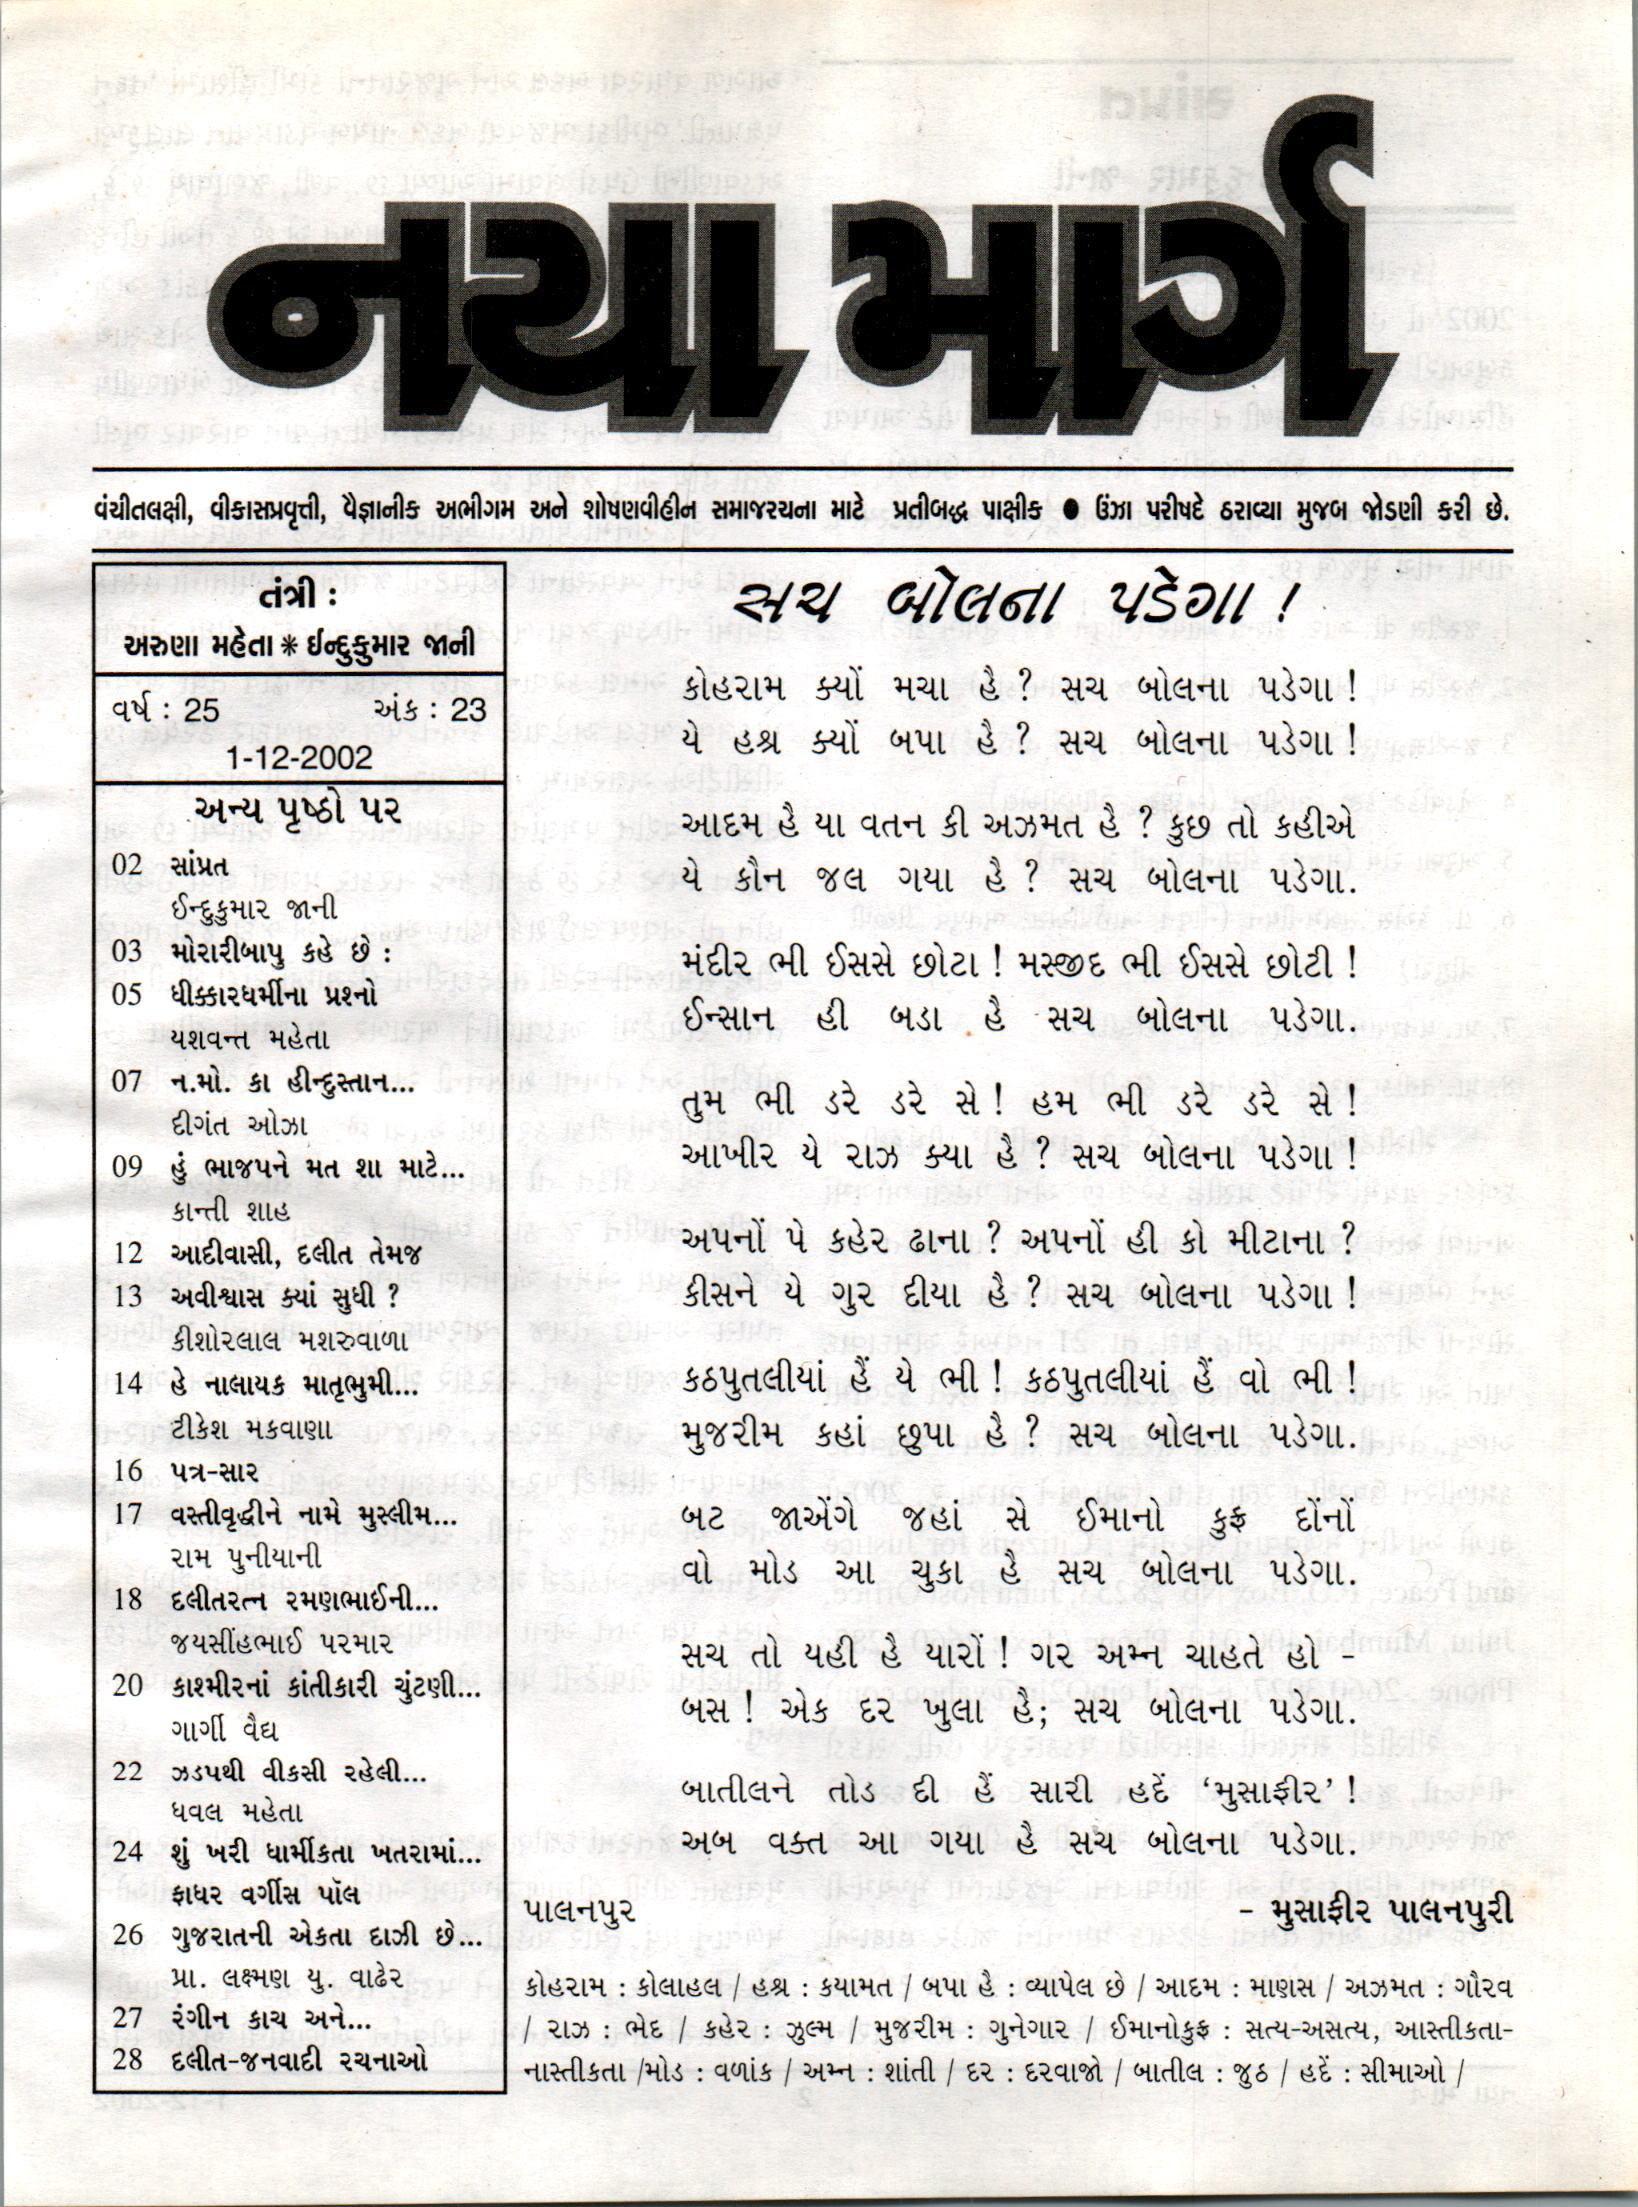 નયા માર્ગ
વંચીતલક્ષી, વીકાસપ્રવૃત્તી, વૈજ્ઞાનીક અભીગમ અને શોષણવીહીન સમાજરચના માટે પ્રતીબદ્ધ પાક્ષીક ● ઉંઝા પરીષદે ઠરાવ્યા મુજબ જોડણી કરી છે.
તંત્રી :
અરુણા મહેતા * ઈન્દુકુમાર જાની
વર્ષ : 25 અંક : 23
1-12-2002
અન્ય પૃષ્ઠો પર
02 સાંપ્રત
ઈન્દુકુમાર જાની
03 મોરારીબાપુ કહે છે :
05 ધીક્કારધર્મીના પ્રશ્નો
યશવન્ત મહેતા
07 ન.મો. કા હીન્દુસ્તાન...
દીગંત ઓઝા
09 હું ભાજપને મત શા માટે...
કાન્તી શાહ
12 આદીવાસી, દલીત તેમજ
13 અવીશ્વાસ ક્યાં સુધી ?
કીશોરલાલ મશરુવાળા
14 હે નાલાયક માતૃભુમી...
ટીકેશ મકવાણા
16 પત્ર-સાર
17 વસ્તીવૃદ્ધીને નામે મુસ્લીમ...
રામ પુનીયાની
18 દલીતરત્ન રમણભાઈની...
જયસીંહભાઈ પરમાર
20 કાશ્મીરનાં કાંતીકારી ચુંટણી...
ગાર્ગી વૈદ્ય
22 ઝડપથી વીકસી રહેલી...
ધવલ મહેતા
24 શું ખરી ધાર્મીકતા ખતરામાં...
ફાધર વર્ગીસ પૉલ
26 ગુજરાતની એકતા દાઝી છે...
પ્રા. લક્ષ્મણ યુ. વાઢેર
27 રંગીન કાચ અને...
28 દલીત-જનવાદી રચનાઓ
સચ બોલના પડેગા !
કોહરામ ક્યોં મચા હૈ ? સચ બોલના પડેગા !
યે હશ્ર ક્યોં બપા હૈ ? સચ બોલના પડેગા !
આદમ હૈ યા વતન કી અઝમત હૈ ? કુછ તો કહીએ
યે કૌન જલ ગયા હૈ ? સચ બોલના પડેગા.
મંદીર ભી ઈસસે છોટા ! મસ્જીદ ભી ઈસસે છોટી !
ઈન્સાન હી બડા હૈ સચ બોલના પડેગા.
તુમ ભી ડરે ડરે સે ! હમ ભી ડરે ડરે સે !
આખીર યે રાઝ ક્યા હૈ ? સચ બોલના પડેગા !
અપનોં પે કહેર ઢાના ? અપનોં હી કો મીટાના ?
કીસને યે ગુર દીયા હૈ ? સચ બોલના પડેગા !
કઠપુતલીયાં હૈં યે ભી ! કઠપુતલીયાં હૈં વો ભી !
મુજરીમ કહાં છુપા હૈ ? સચ બોલના પડેગા.
બટ જાએંગે જહાં સે ઈમાનો કુફ્ર દોંનોં
વો મોડ આ ચુકા હૈ સચ બોલના પડેગા.
સચ તો યહી હૈ યારોં ! ગર અમ્ન ચાહતે હો -
બસ ! એક દર ખુલા હૈ; સચ બોલના પડેગા.
બાતીલને તોડ દી હૈં સારી હદેં ‘મુસાફીર’ !
અબ વક્ત આ ગયા હૈ સચ બોલના પડેગા.
પાલનપુર - મુસાફીર પાલનપુરી
કોહરામ : કોલાહલ / હશ્ર : કયામત / બપા હૈ : વ્યાપેલ છે / આદમ : માણસ / અઝમત : ગૌરવ
/ રાઝ : ભેદ / કહેર : ઝુલ્મ / મુજરીમ : ગુનેગાર / ઈમાનોકુફ્ર : સત્ય-અસત્ય, આસ્તીકતા-
નાસ્તીકતા /મોડ : વળાંક / અમ્ન : શાંતી / દર : દરવાજો / બાતીલ : જુઠ / હદેં : સીમાઓ /